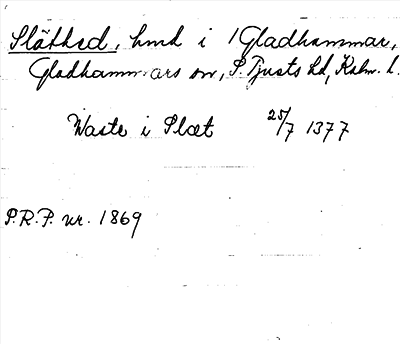 Släthed, hmd i Gladhammar,
Gladhammars sn, S. Tjusts hd, Kalm. l.
Waste i Slæt 25/7 1377
S.R.P. nr. 1869